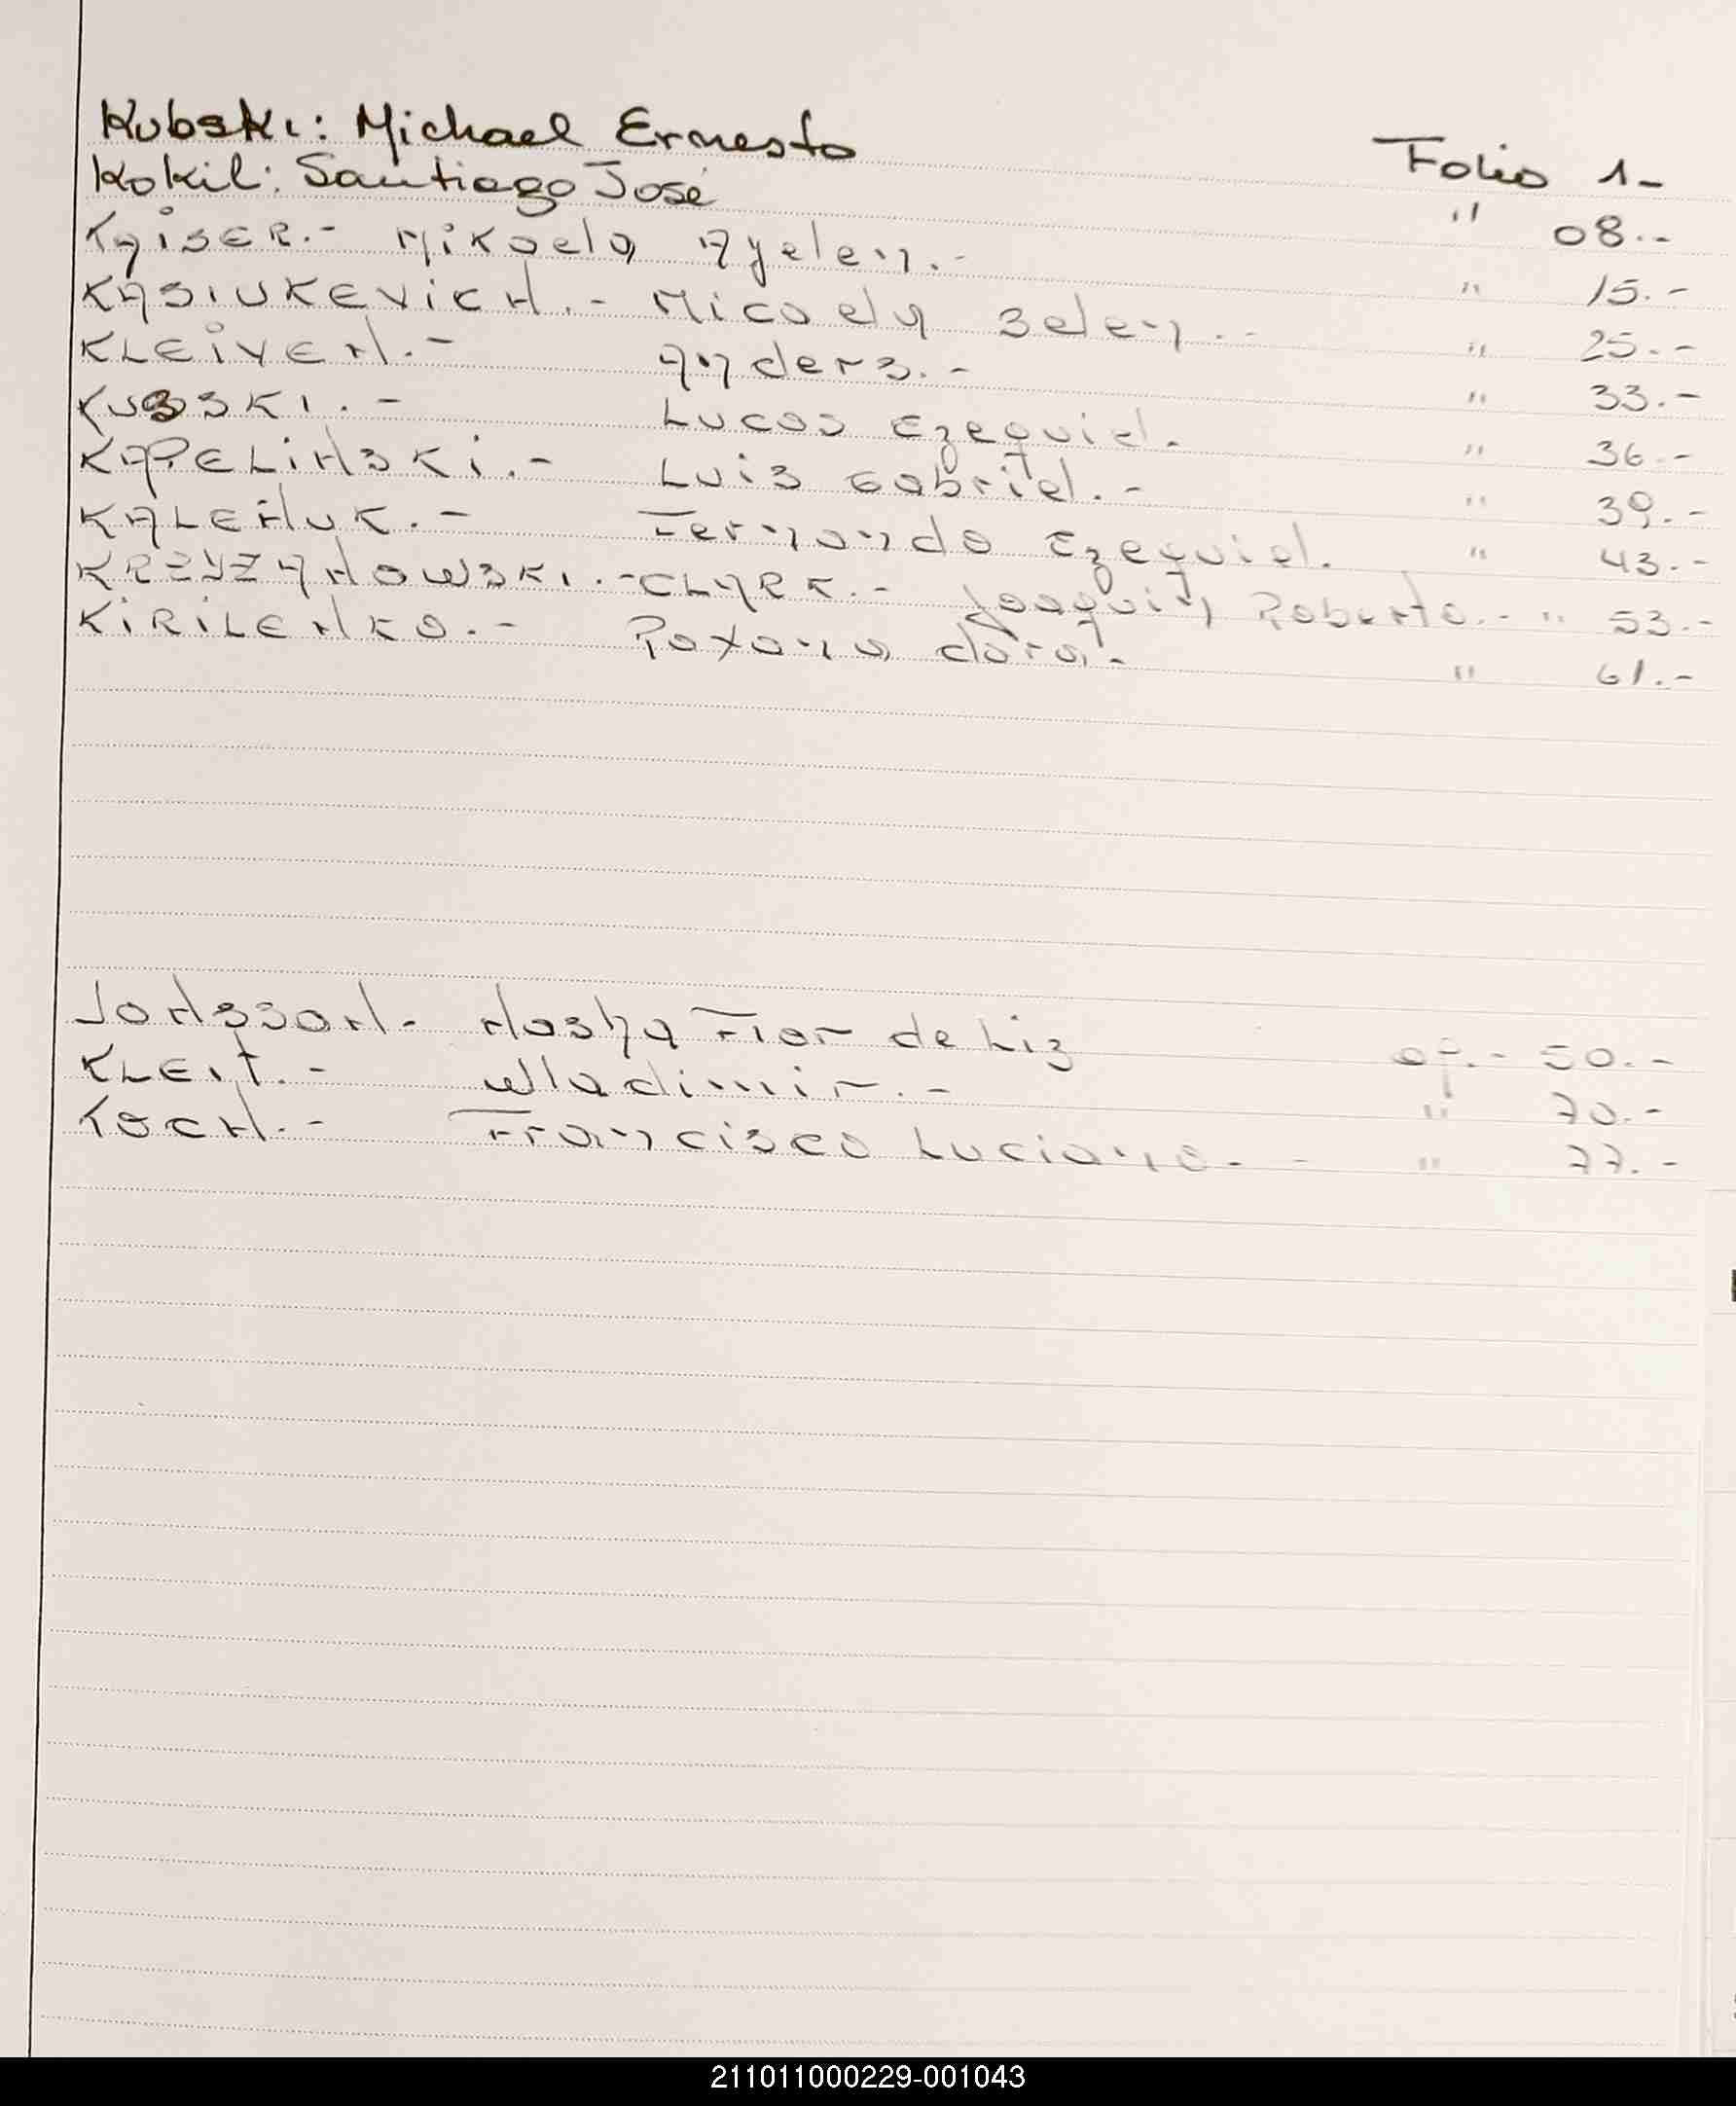 Kubski: Michael Ernesto Folio 1-
Kokil: Santiago José " 08.-
KAiSER.- Mikaela Ayelen.- " 15.-
KASIUKEVICH.- Micaela Belen.- " 25.-
KLEiVEN.- Anders.- " 33.-
KUBSKI.- Lucas Ezequiel. " 36.-
KAPELiNSKi.- Luis Gabriel.- " 39.-
KALENUK.- Fernando Ezequiel. " 43.-
KRZYZANOWSKI.- CLARK.- Joaquin Roberto.- " 53.-
KiRiLENKO.- Roxana dora.- " 61.-
JONSSON.- Nasha Flor de Lis of.- 50.-
KLEIT.- Wladimir.- " 70.-
KOCH.- Francisco Luciano.- - " 77.-
211011000229-001043